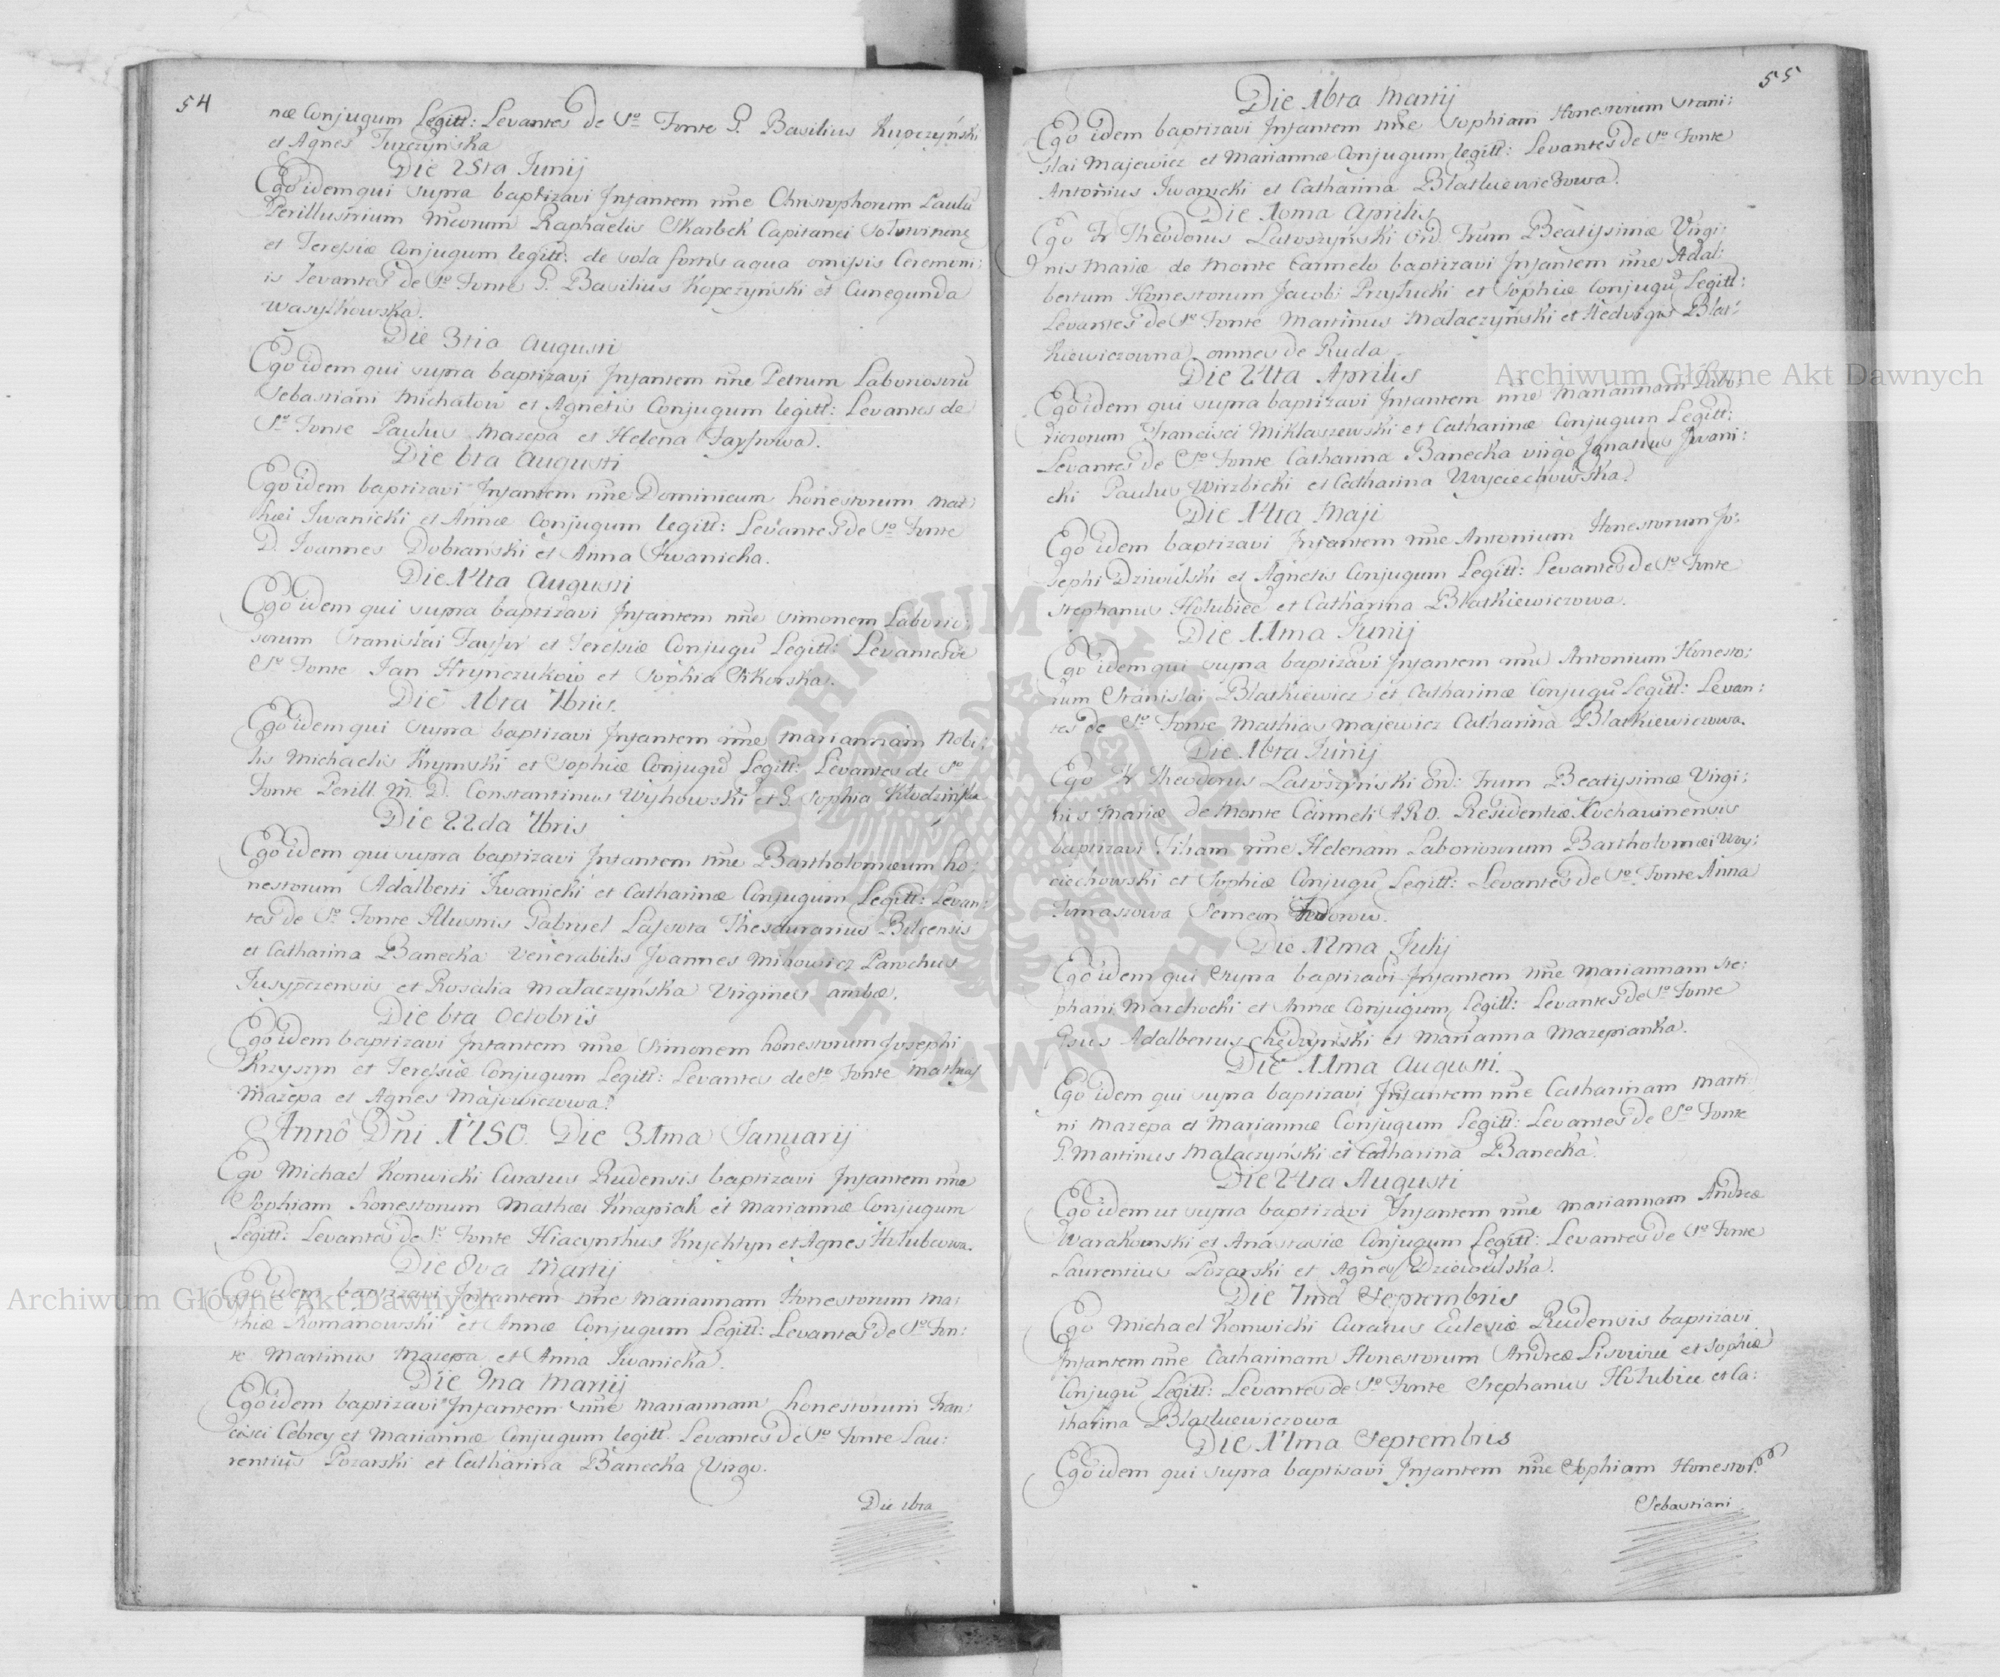 54
næ Conjugum Legitt: Levantes de Sº Fonte G. Basilius Kupczyński
et Agnes Turczyńska
Die 25ta Junij
Ego idem qui supra baptizavi Infantem nne Christophorum Paulũ
Perillustrium Raphaelis Skarbek Capitanei
et Teresiæ Conjugum legitt: de sola fortis aqua omissis Ceremoni:
is Levantes de Sº Fonte G. Basilius Kopczyński et Cunegunda
Wasylkowska.
Die 3tia Augusti
Ego idem qui supra baptizavi Infantem nne Petrum Laboriosorũ
Sebastiani Michałow et Agnetis Conjugum legitt: Levantes de
Sº Fonte Paulus Mazepa et Helena Faysrowa.
Die 6ta Augusti
Ego idem baptizavi Infantem nne Dominicum honestorum Mat:
thæi Iwanicki et Annæ Conjugum legitt: Levantes de Sº Fonte
D. Joannes Dobrański et Anna Iwanicka.
Die 14ta Augusti
Ego idem qui supra baptizavi Infantem nne Simonem Laborio:
sorum Stanislai Fayser et Teresiæ Conjugũ Legitt: Levantes de
Sº Fonte Jan Hrynczukow et Sophia Sikorska.
Die 16ta 7bris.
Ego idem qui supra baptizavi Infantem nne Mariannam Nobi:
lis Michaelis Krymski et Sophiæ Conjugũ Legitt: Levantes de Sº
Fonte Perill. M. D. Constantinus Wyhowski et G. Sophia Kłodzińska
Die 22da 7bris
Ego idem qui supra baptizavi Infantem nne Bartholomæum ho:
nestorum Adalberti Iwanicki et Catharinæ Conjugum Legitt: Levan:
tes de Sº Fonte Illustris Gabryel Lassota Thesaurarius Belcensis
et Catharina Banecka Venerabilis Joannes Mikowicz Parochus
et Rosalia Małaczyńska Virgines ambæ.
Die 6ta Octobris
Ego idem baptizavi Infantem nne Simonem honestorum Josephi
Krzyszyn et Teresiæ Conjugum Legitt: Levantes de Sº Fonte Mathias
Mazepa et Agnes Majewiczowa.
Anno Dni 1750. Die 31ma Januarij
Ego Michael Konwicki Curatus Rudensis baptizavi Infantem nne
Sophiam honestorum Mathæi Knapiak et Mariannæ Conjugum
Legitt: Levantes de Sº Fonte Hiacynthus Krychtyn et Agnes Hołubcowa.
Die 8va Martij
Ego idem baptizavi Infantem nne Mariannam Honestorum Ma:
thiæ Romanowski et Annæ Conjugum Legitt: Levantes de Sº Fon:
te Martinus Mazepa et Anna Iwanicka.
Die 9na Martij
Ego idem baptizavi Infantem nne Mariannam honestorum Fran:
cisci Cebrey et Mariannæ Conjugum legitt. Levantes de Sº Fonte Lau:
rentius Pozarski et Catharina Banecka Virgo.
Die 16ta
55
Die 16ta Martij
Ego idem baptizavi Infantem nne Sophiam Honestorum Stani:
slai Majewicz et Mariannæ Conjugum legitt: Levantes de Sº Fonte
Antonius Iwanicki et Catharina Blatkiewiczowa.
Die 10ma Aprilis
Ego Fr Theodorus Latoszyński Ord. Frum Beatissimæ Virgi:
nis Mariæ de Monte Carmelo baptizavi Infantem nne Adal:
bertum Honestorum Jacobi Przyłucki et Sophiæ Conjugũ Legitt:
Levantes de Sº Fonte Martinus Małaczyński et Hedvigis Blat:
kiewiczowna omnes de Ruda
Die 24ta Aprilis
Ego idem qui supra baptizavi Infantem nne Mariannam Labo:
riosorum Francisci Miklaszewski et Catharinæ Conjugum Legitt:
Levantes de Sº Fonte Catharina Banecka virgo Ignatius Iwani:
cki Paulus Wirzbicki et Catharina Woyciechowska.
Die 14ta Maji
Ego idem baptizavi Infantem nne Antonium Honestorum Jo:
sephi Dziwulski et Agnetis Conjugum Legitt: Levantes de Sº Fonte
Stephanus Hołubiec et Catharina Blatkiewiczowa.
Die 11ma Junij
Ego idem qui supra baptizavi Infantem nne Antonium Honesto:
rum Stanislai Blatkiewicz et Catharinæ Conjugũ Legitt: Levan:
tes de Sº Fonte Mathias Majewicz Catharina Blatkiewiczowa.
Die 16ta Junij
Ego Fr Theodorus Latoszyński Ord: Frum Beatissimæ Virgi:
nis Mariæ de Monte Carmeli ARO. Residentiæ Kochawinensis
baptizavi Filiam nne Helenam Laboriosorum Bartholomæi Woy:
ciechowski et Sophiæ Conjugũ Legitt: Levantes de Sº Fonte Anna
Tomaszowa Semeon Fedorow.
Die 12ma Julij
Ego idem qui supra baptizavi Infantem nne Mariannam Ste:
phani Marchocki et Annæ Conjugum Legitt: Levantes de Sº Fonte
Adalbertus Chędzyński et Marianna Mazepianka.
Die 11ma Augusti.
Ego idem qui supra baptizavi Infantem nne Catharinam Marti
ni Mazepa et Mariannæ Conjugum Legitt: Levantes de Sº Fonte
G. Martinus Małaczyński et Catharina Banecka.
Die 24ta Augusti
Ego idem ut supra baptizavi Infantem nne Mariannam Andreæ
Warakomski et Anastasiæ Conjugum Legitt: Levantes de Sº Fonte
Laurentius Pozarski et Agnes Dziewulska.
Die 7ma Septembris
Ego Michael Konwicki Curatus Eclesiæ Rudensis baptizavi
Infantem nne Catharinam Honestorum Andreæ et Sophiæ
Conjugũ Legitt: Levantes de Sº Fonte Stephanus Hołubiec et Ca:
tharina Blatkiewiczowa
Die 17ma Septembris
Ego idem qui supra baptisavi Infantem nne Sophiam Honestor.
Sebastiani
Archiwum Główne Akt Dawnych
Archiwum Główne Akt Dawnych
ARCHIWUM GŁÓWNE AKT DAWNYCH